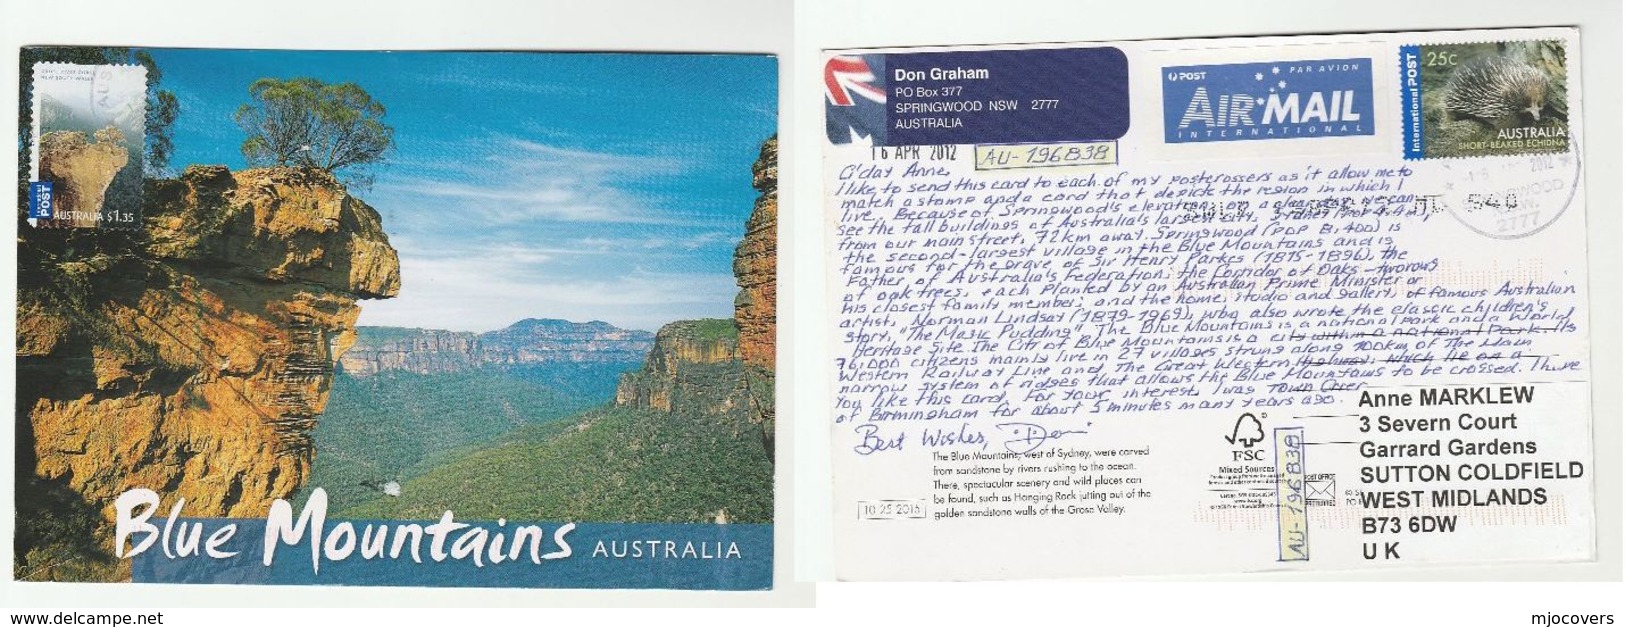 AUSTRALIA $1.35
POST
Blue Mountains AUSTRALIA
Don Graham
PO Box 377
SPRINGWOOD NSW 2777
AUSTRALIA
POST
PAR AVION
AIR MAIL
INTERNATIONAL
International POST
25c
AUSTRALIA
SHORT-BEAKED ECHIDNA
16 APR 2012
AU-196838
2012
SPRINGWOOD
N.S.W.
2777
G'day Anne,
I like to send this card to each of my postcrossers as it allow me to
match a stamp and a card that depict the region in which I
live. Because of Springwood's elevation, on a clear day, we can
see the tall buildings of Australia's largest city, Sydney (Pop 4.4m),
from our main street, 72km away. Springwood (POP 8,400) is
the second-largest village in the Blue Mountains and is
famous for the grave of Sir Henry Parkes (1815-1896), the
Father of Australia's Federation; the Corridor of Oaks - two rows
of oak trees, each planted by an Australian Prime Minister or
his closest family member; and the home, studio and gallery of famous Australian
artist, Norman Lindsay (1879-1969), who also wrote the classic children's
story, "The Magic Pudding". The Blue Mountains is a national park and a World
Heritage Site. The City of Blue Mountains is a city within a national park. Its
76,000 citizens mainly live in 27 villages strung along 100km of The Main
Western Railway Line and The Great Western Highway, which lie on a
narrow system of ridges that allows the Blue Mountains to be crossed. I have
You like this card. For your interest, I was Town Crier
of Birmingham for about 5 minutes many years ago.
Best Wishes, Don
The Blue Mountains, west of Sydney, were carved
from sandstone by rivers rushing to the ocean.
There, spectacular scenery and wild places can
be found, such as Hanging Rock jutting out of the
golden sandstone walls of the Grose Valley.
10 25 2015
FSC
Mixed Sources
AU-196838
POST OFFICE
Anne MARKLEW
3 Severn Court
Garrard Gardens
SUTTON COLDFIELD
WEST MIDLANDS
B73 6DW
U K
delcampe.net
mjocovers